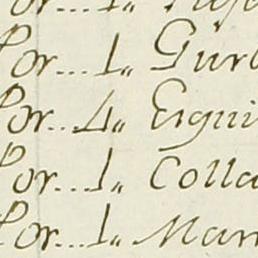 Por...1,,
Por...1,, Gurb
Por...4,, Esqui
Por...1,, Colla
Por...1,, Man